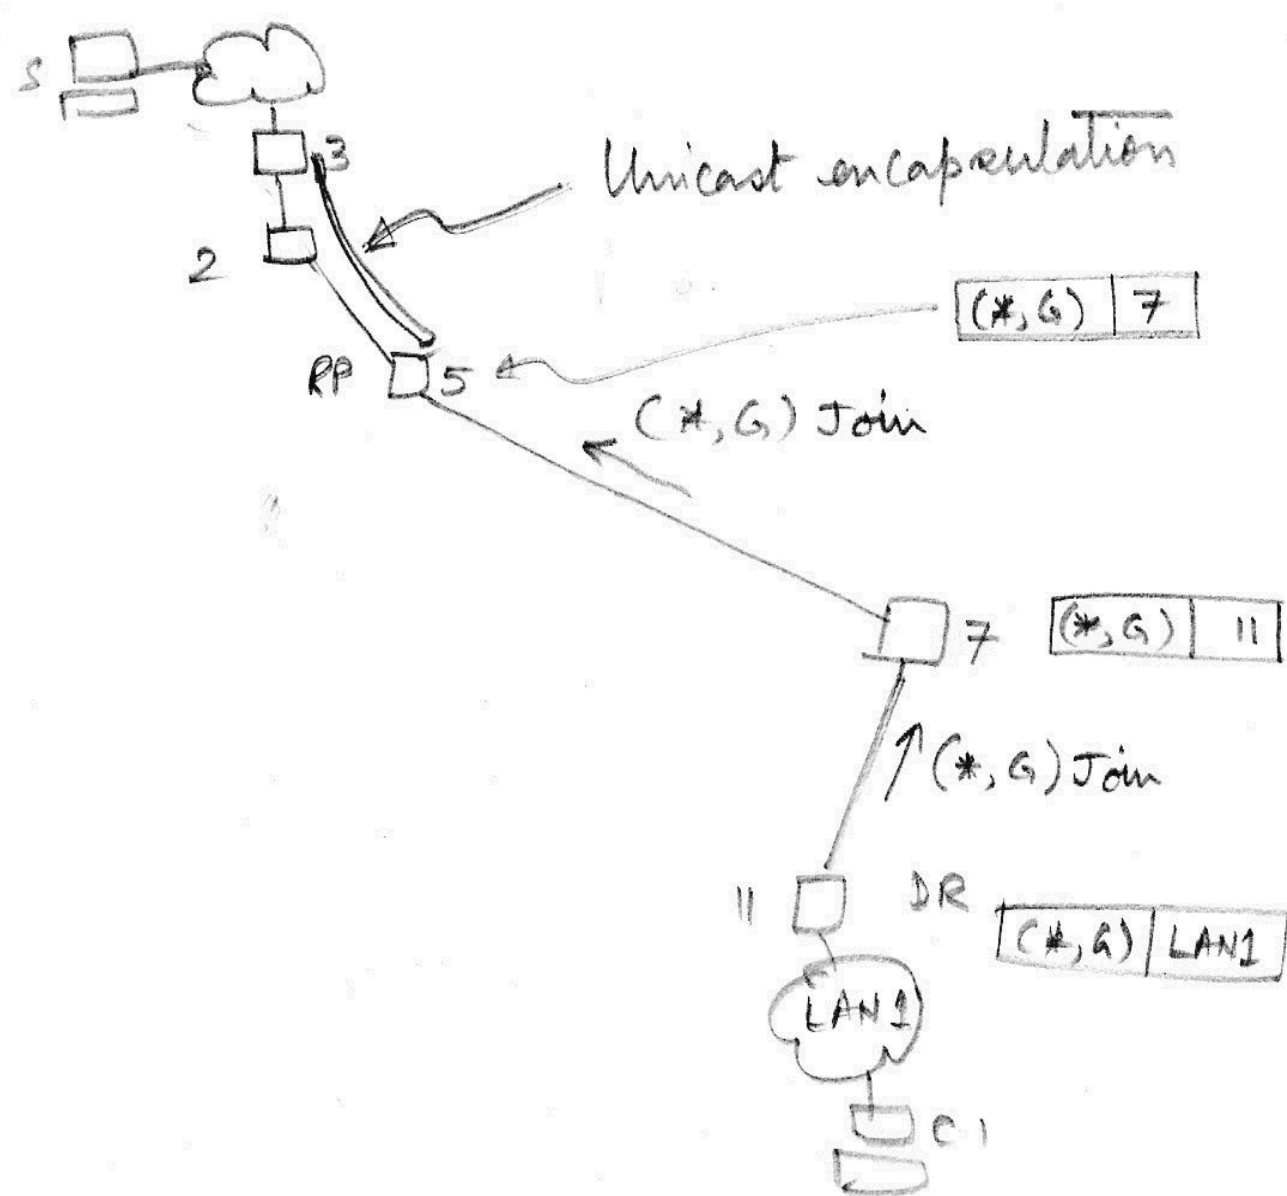 S
3
Unicast encapsulation
2
(*,G) 7
RP 5
(*,G) Join
7 (*,G) 11
(*,G) Join
11 DR
(*,G) LAN1
LAN1
C1